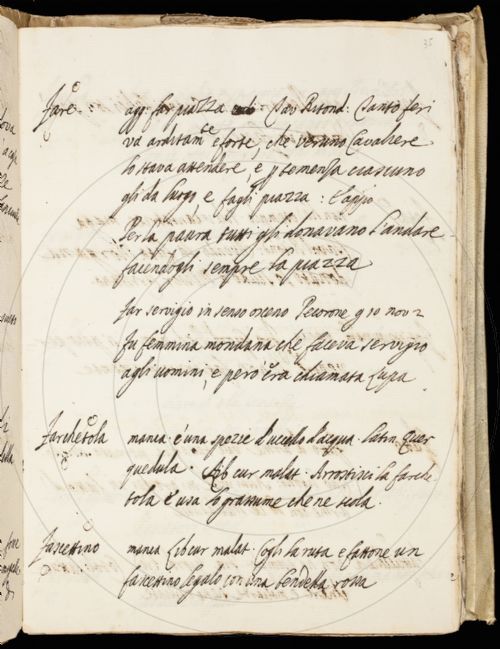 35
Fare agg: far piazza Tav Ritond: Tanto feri
va arditam.e e forte, che veruno Cavaliere
lo stava attendere, e p temenza ciascuno
gli da luogo, e fagli piazza:
Per la paura tutti gli donavano l'andare
facendogli sempre la piazza
Far servigio in senso osceno Pecorone g 10 nov 2
Fu femmina mondana che faceva servigio
agli uomini, e però era chiamata Lupa
Farchetola manca. è una spezie d'uccello d'acqua. latin. Quer
quedula. Lib cur malat. Arrostisci la farche
tola e usa lo grassume che ne scola.
Fascettino manca Lib cur malat. Cogli la ruta e fattone un
fascettino legalo con una bendella rossa